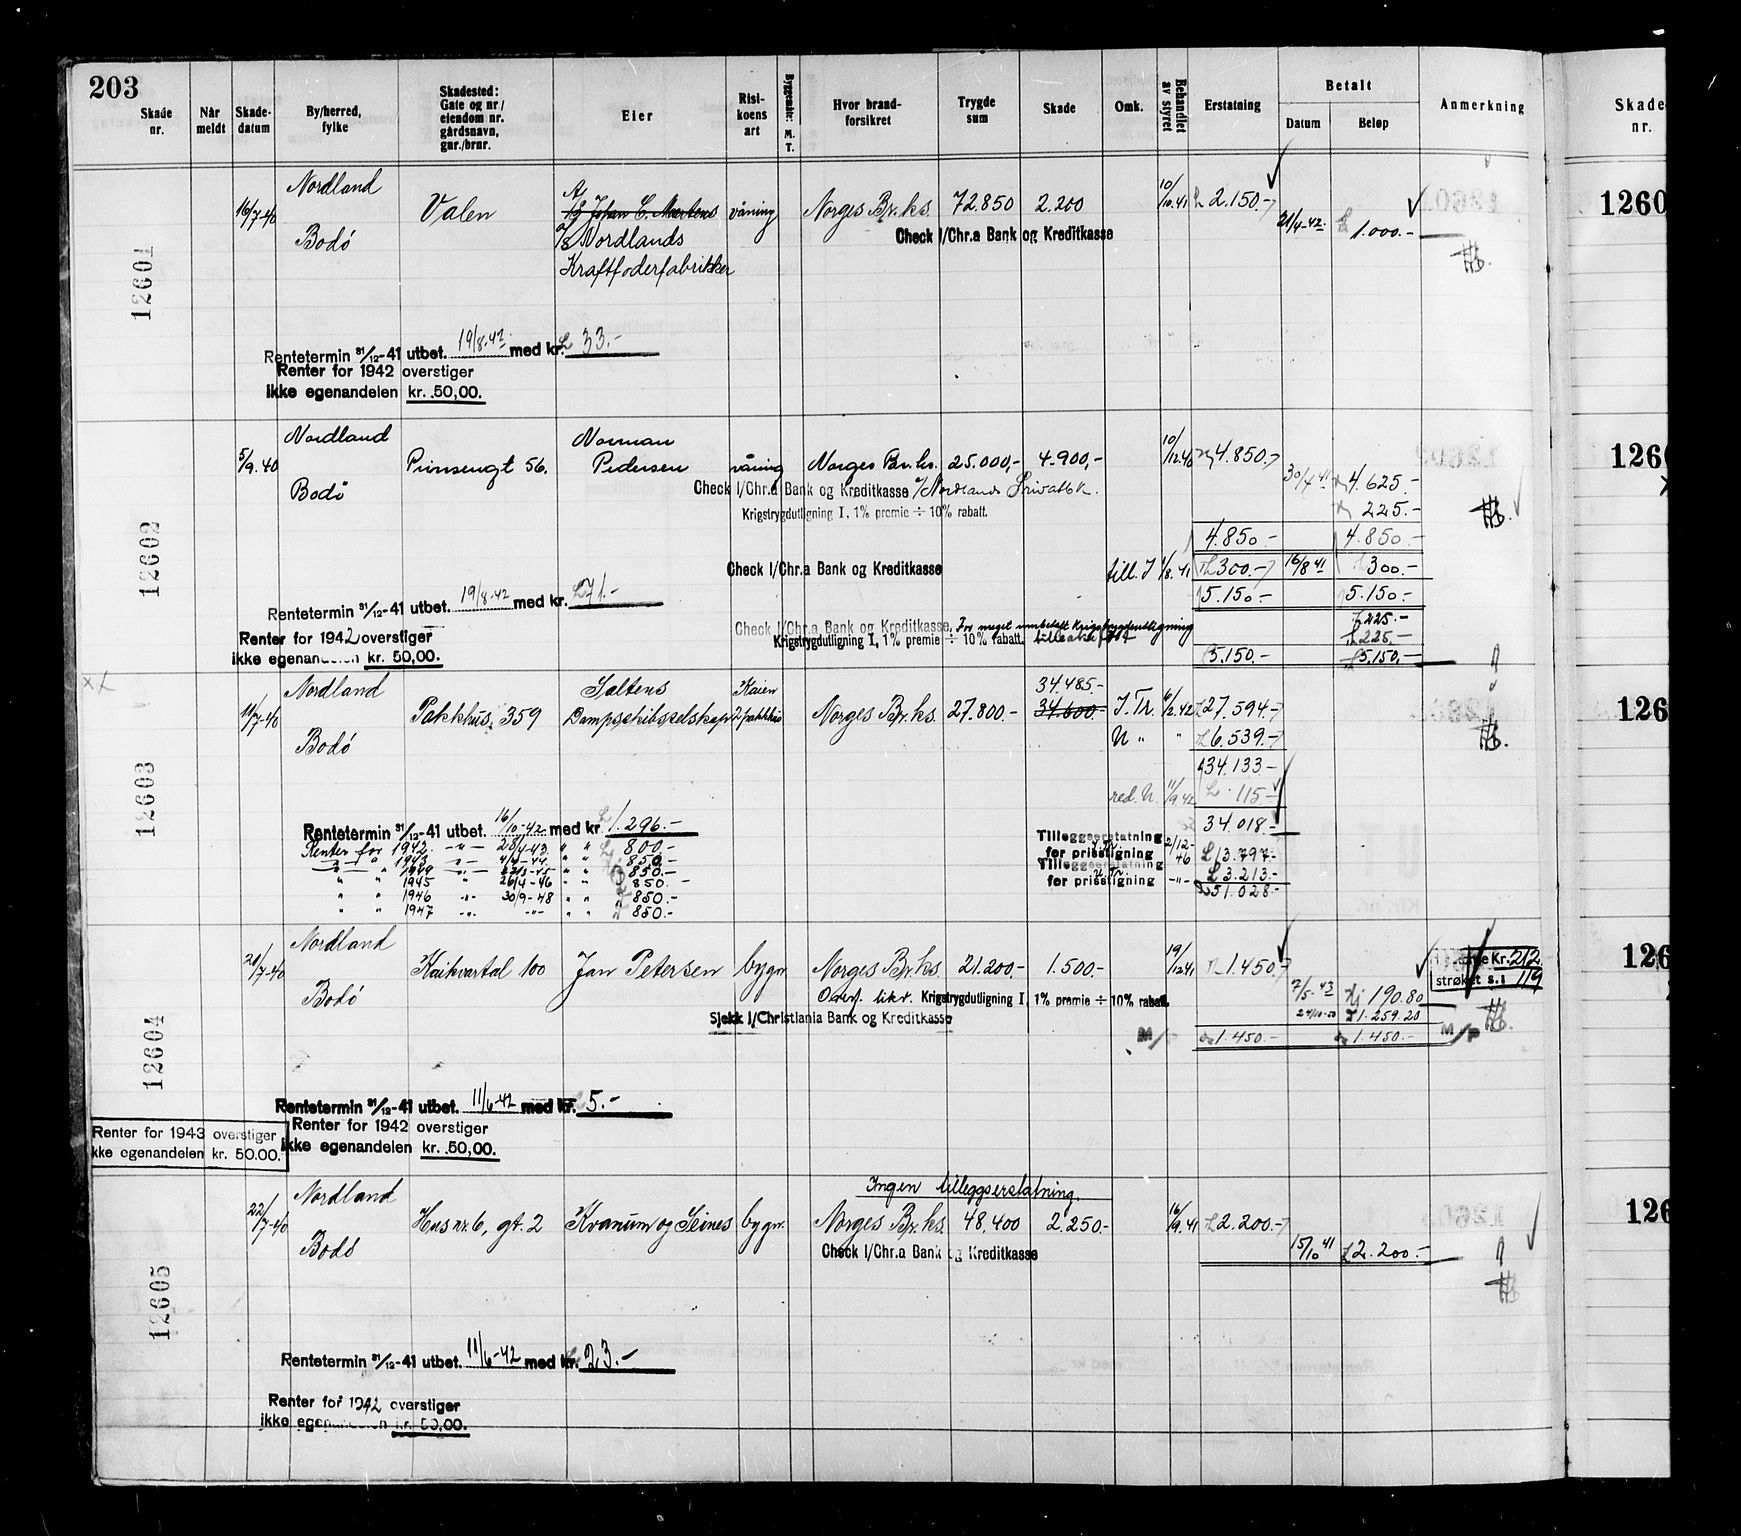 203
Skade nr.
Når meldt
Skade-datum
By/herred, fylke
Skadested: Gate og nr./ eiendom nr. gårdsnavn, gnr./brnr.
Eier
Risi-koens art
Byggemåte: M. T.
Hvor brand-forsikret
Trygde sum
Skade
Omk.
Behandlet av styret
Erstatning
Betalt
Datum
Beløp
Anmerkning
Skade nr.
12601
16/7-40
Nordland
Bodø
Valen
A/S Johan C. Martens
A/S Nordlands
Kraftfoderfabrikker
våning
Norges Br.ks.
72.850
2.200
10/10.41
2.150.-
21/4-42.
1.000.-
Check I/Chr.a Bank og Kreditkasse
Rentetermin 31/12-41 utbet. 19/8-42 med kr. 33.-
Renter for 1942 overstiger
ikke egenandelen kr. 50,00.
1260
12602
5/9.40
Nordland
Bodø
Prinsengt 56.
Norman
Pedersen
våning
Norges Br.ks.
25.000,-
4.900,-
10/12.40
4.850.-
30/4 41
4.625.-
225.-
Check I/Chr.a Bank og Kreditkasse v/Nordlands Privatbk.
Krigstrygdutligning I, 1% premie ÷ 10% rabatt.
4.850.-
4.850.-
Check I/Chr.a Bank og Kreditkasse
till. I
1/8.41
300.-
16/8 41
300.-
5.150.-
5.150.-
Rentetermin 31/12-41 utbet. 19/8-42 med kr. 71.-
Renter for 1942 overstiger
ikke egenandelen kr. 50,00.
Check I/Chr.a Bank og Kreditkasse, For meget innbetalt Krigstrygdutligning
Krigstrygdutligning I, 1% premie ÷ 10% rabatt.
225.-
225.-
5.150.-
5.150.-
126
12603
11/7-40
Nordland
Bodø
Pakkhus, 359
Saltens
Dampskibsselskap
Kaien
2 pakkhus
Norges Br.ks.
27.800.-
34.485.-
34.600.-
I. Tr.
6/2.42
27.594.-
U " "
6.539.-
34.133-
red. U.
11/9.42
115-
34.018.-
Tilleggserstatning
for prisstigning
2/12-46
13.797-
Tilleggserstatning
for prisstigning
-"-
3.213.-
51.028.-
Rentetermin 31/12-41 utbet. 16/10-42 med kr. 1.296.-
Renter for 1942. -"- 28/4-43. " " 800-
-"- " 1943 -"- 4/4-44. " " 850.-
-"- " 1944 -"- 22/3-45 " " 850.-
" " 1945 " 26/4-46 " " 850.-
" " 1946 -"- 30/9-48 " " 850.-
" " 1947 -"- -"- " " 850.-
126
12604
20/7-40
Nordland
Bodø
Kaikvartal 100
Jan Petersen
bygn
Norges Br.ks
21.200.-
1.500.-
19/12 41
1.450.-
7/5-43
190.80
24/10-50
1.259.20
1.450.-
1.450.-
Overf. likv. Krigstrygdutligning I, 1% premie ÷ 10% rabatt.
Sjekk I/Christiania Bank og Kreditkasse
Kr. 212.
strøket s. 119
Rentetermin 31/12-41 utbet. 11/6-42 med kr. 5.-
Renter for 1942 overstiger
ikke egenandelen kr. 50,00.
Renter for 1943 overstiger
ikke egenandelen kr. 50.00.
126
12605
22/7-40
Nordland
Bodø
Hus nr. 6, gt. 2
Kvanum og Seines
bygn.
Ingen tilleggserstatning.
Norges Br.ks.
48.400
2.250-
16/9.41
2.200.-
15/10 41
2.200.-
Check I/Chr.a Bank og Kreditkasse
Rentetermin 31/12-41 utbet. 11/6-42 med kr. 23.-
Renter for 1942 overstiger
ikke egenandelen kr. 50,00.
126